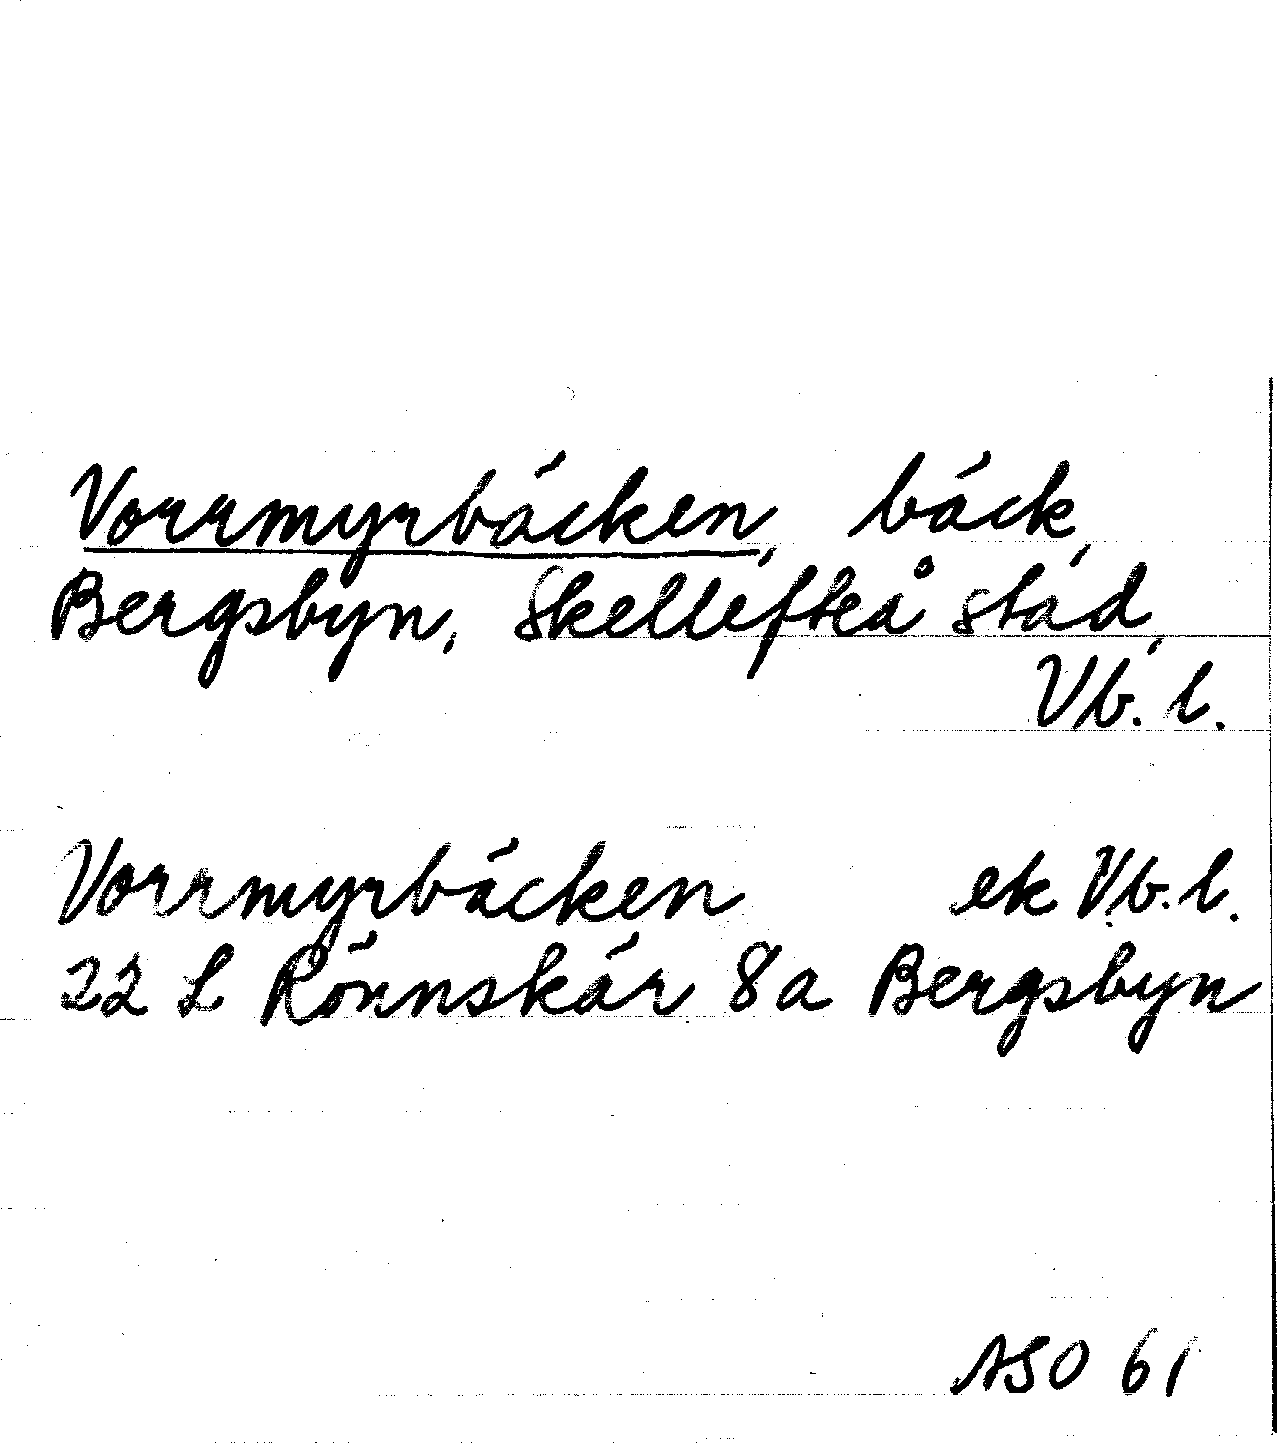 Vorrmyrbäcken, bäck,
Bergsbyn, Skellefteå stad,
Vb. l.
Vorrmyrbäcken ek Vb. l.
22 L Rönnskär 8a Bergsbyn
ASO 61